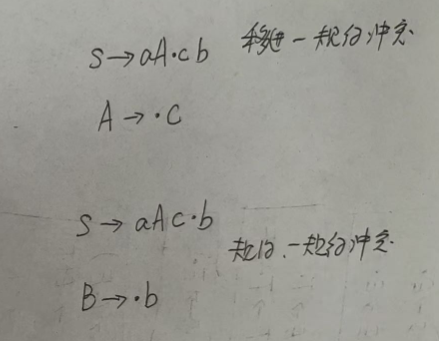 S→aA·cb 移进-规约冲突.
A→·C
S→aAc·b
规约-规约冲突.
B→·b